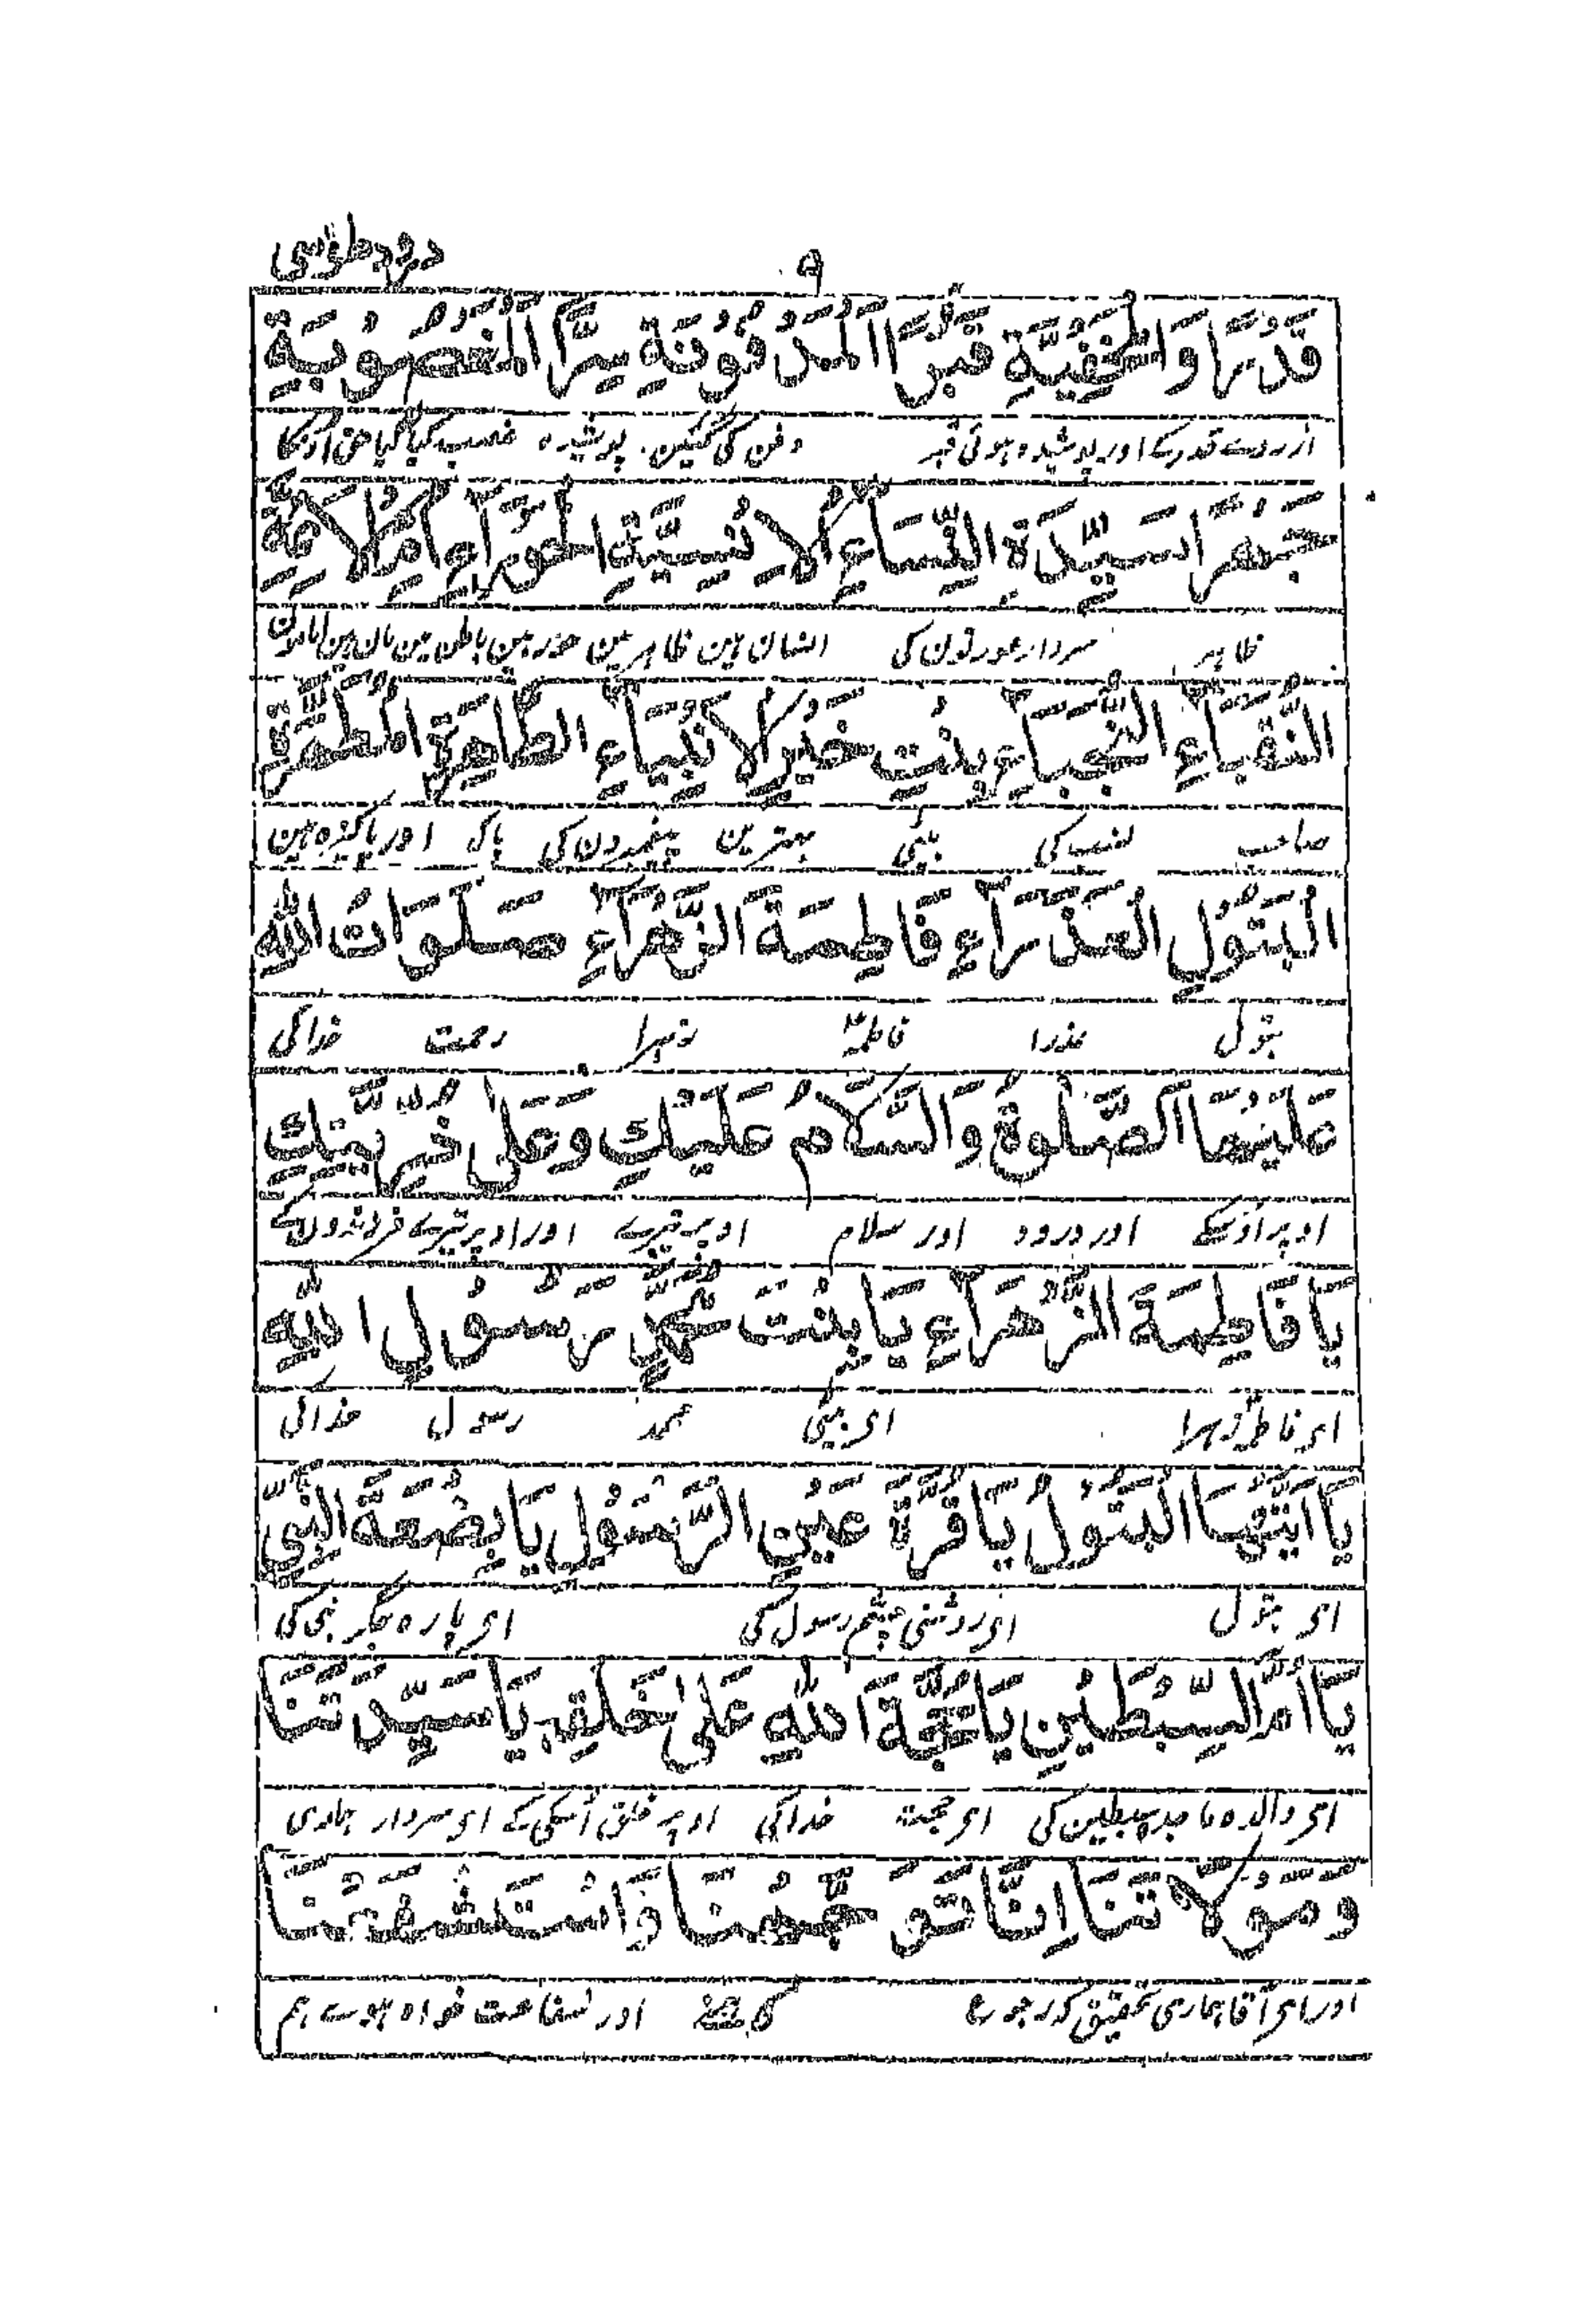 ۹
درود طوسی
قَدْرًا وَالْمَخْفِيَّةِ قَبْرًا الْمَدْفُوْنَةِ سِرًّا الْمَغْصُوْبَةِ
ازروے قدرکے اور پوشیدہ ہوئی قبر دفن کی گئین پوشیدہ غصب کیا گیا حق اونکا
جَهْرًا سَيِّدَةِ النِّسَاءِ الْاِنْسِيَّةِ الْحَوْرَاءِ اُمِّ الْاَئِمَّةِ
ظاہر سردار عورتون کی انسان ہین ظاہر مین حور ہین باطن مین مان ہین امامون
النُّقَبَاءِ النُّجَبَاءِ بِنْتِ خَيْرِ الْاَنْبِيَاءِ الطَّاهِرَةِ الْمُطَهَّرَةِ
صاحب نسب کی بیٹی بہترین پیغمبرون کی پاک اور پاکیزہ ہین
الْبَتُوْلِ الْعَذْرَاءِ فَاطِمَةَ الزَّهْرَاءِ صَلَوَاتُ اللهِ
بتول عذرا فاطمہؑ زہرا رحمت خدا کی
عَلَيْهَا اَلصَّلٰوةُ وَالسَّلَامُ عَلَيْكِ وَعَلٰى ذُرِّيَّتِكِ
اوپر اونکے اور درود اور سلام اوپر تیرے اور اوپر تیرے فرزندون کے
يَا فَاطِمَةَ الزَّهْرَاءِ يَا بِنْتَ مُحَمَّدٍ رَسُوْلِ اللهِ
ای فاطمہ زہرا ای بیٹی محمد رسول خدا کی
يَا اَيَّتُهَا الْبَتُوْلُ يَا قُرَّةَ عَيْنِ الرَّسُوْلِ يَا بِضْعَةَ النَّبِيِّ
ای بتول ای روشنی چشم رسول کی ای پارہ جگر نبی کی
يَا اُمَّ السِّبْطَيْنِ يَا حُجَّةَ اللهِ عَلٰى خَلْقِهٖ يَا سَيِّدَتَنَا
ای والدہ ماجدہ سبطین کی ای حجت خدا کی اوپر خلق اسکی کے ای سردار ہماری
وَمَوْلَاتَنَا اِنَّا تَوَجَّهْنَا وَاسْتَشْفَعْنَا
اور ای آقا ہماری تحقیق کہ رجوع اور شفاعت خواہ ہوے ہم